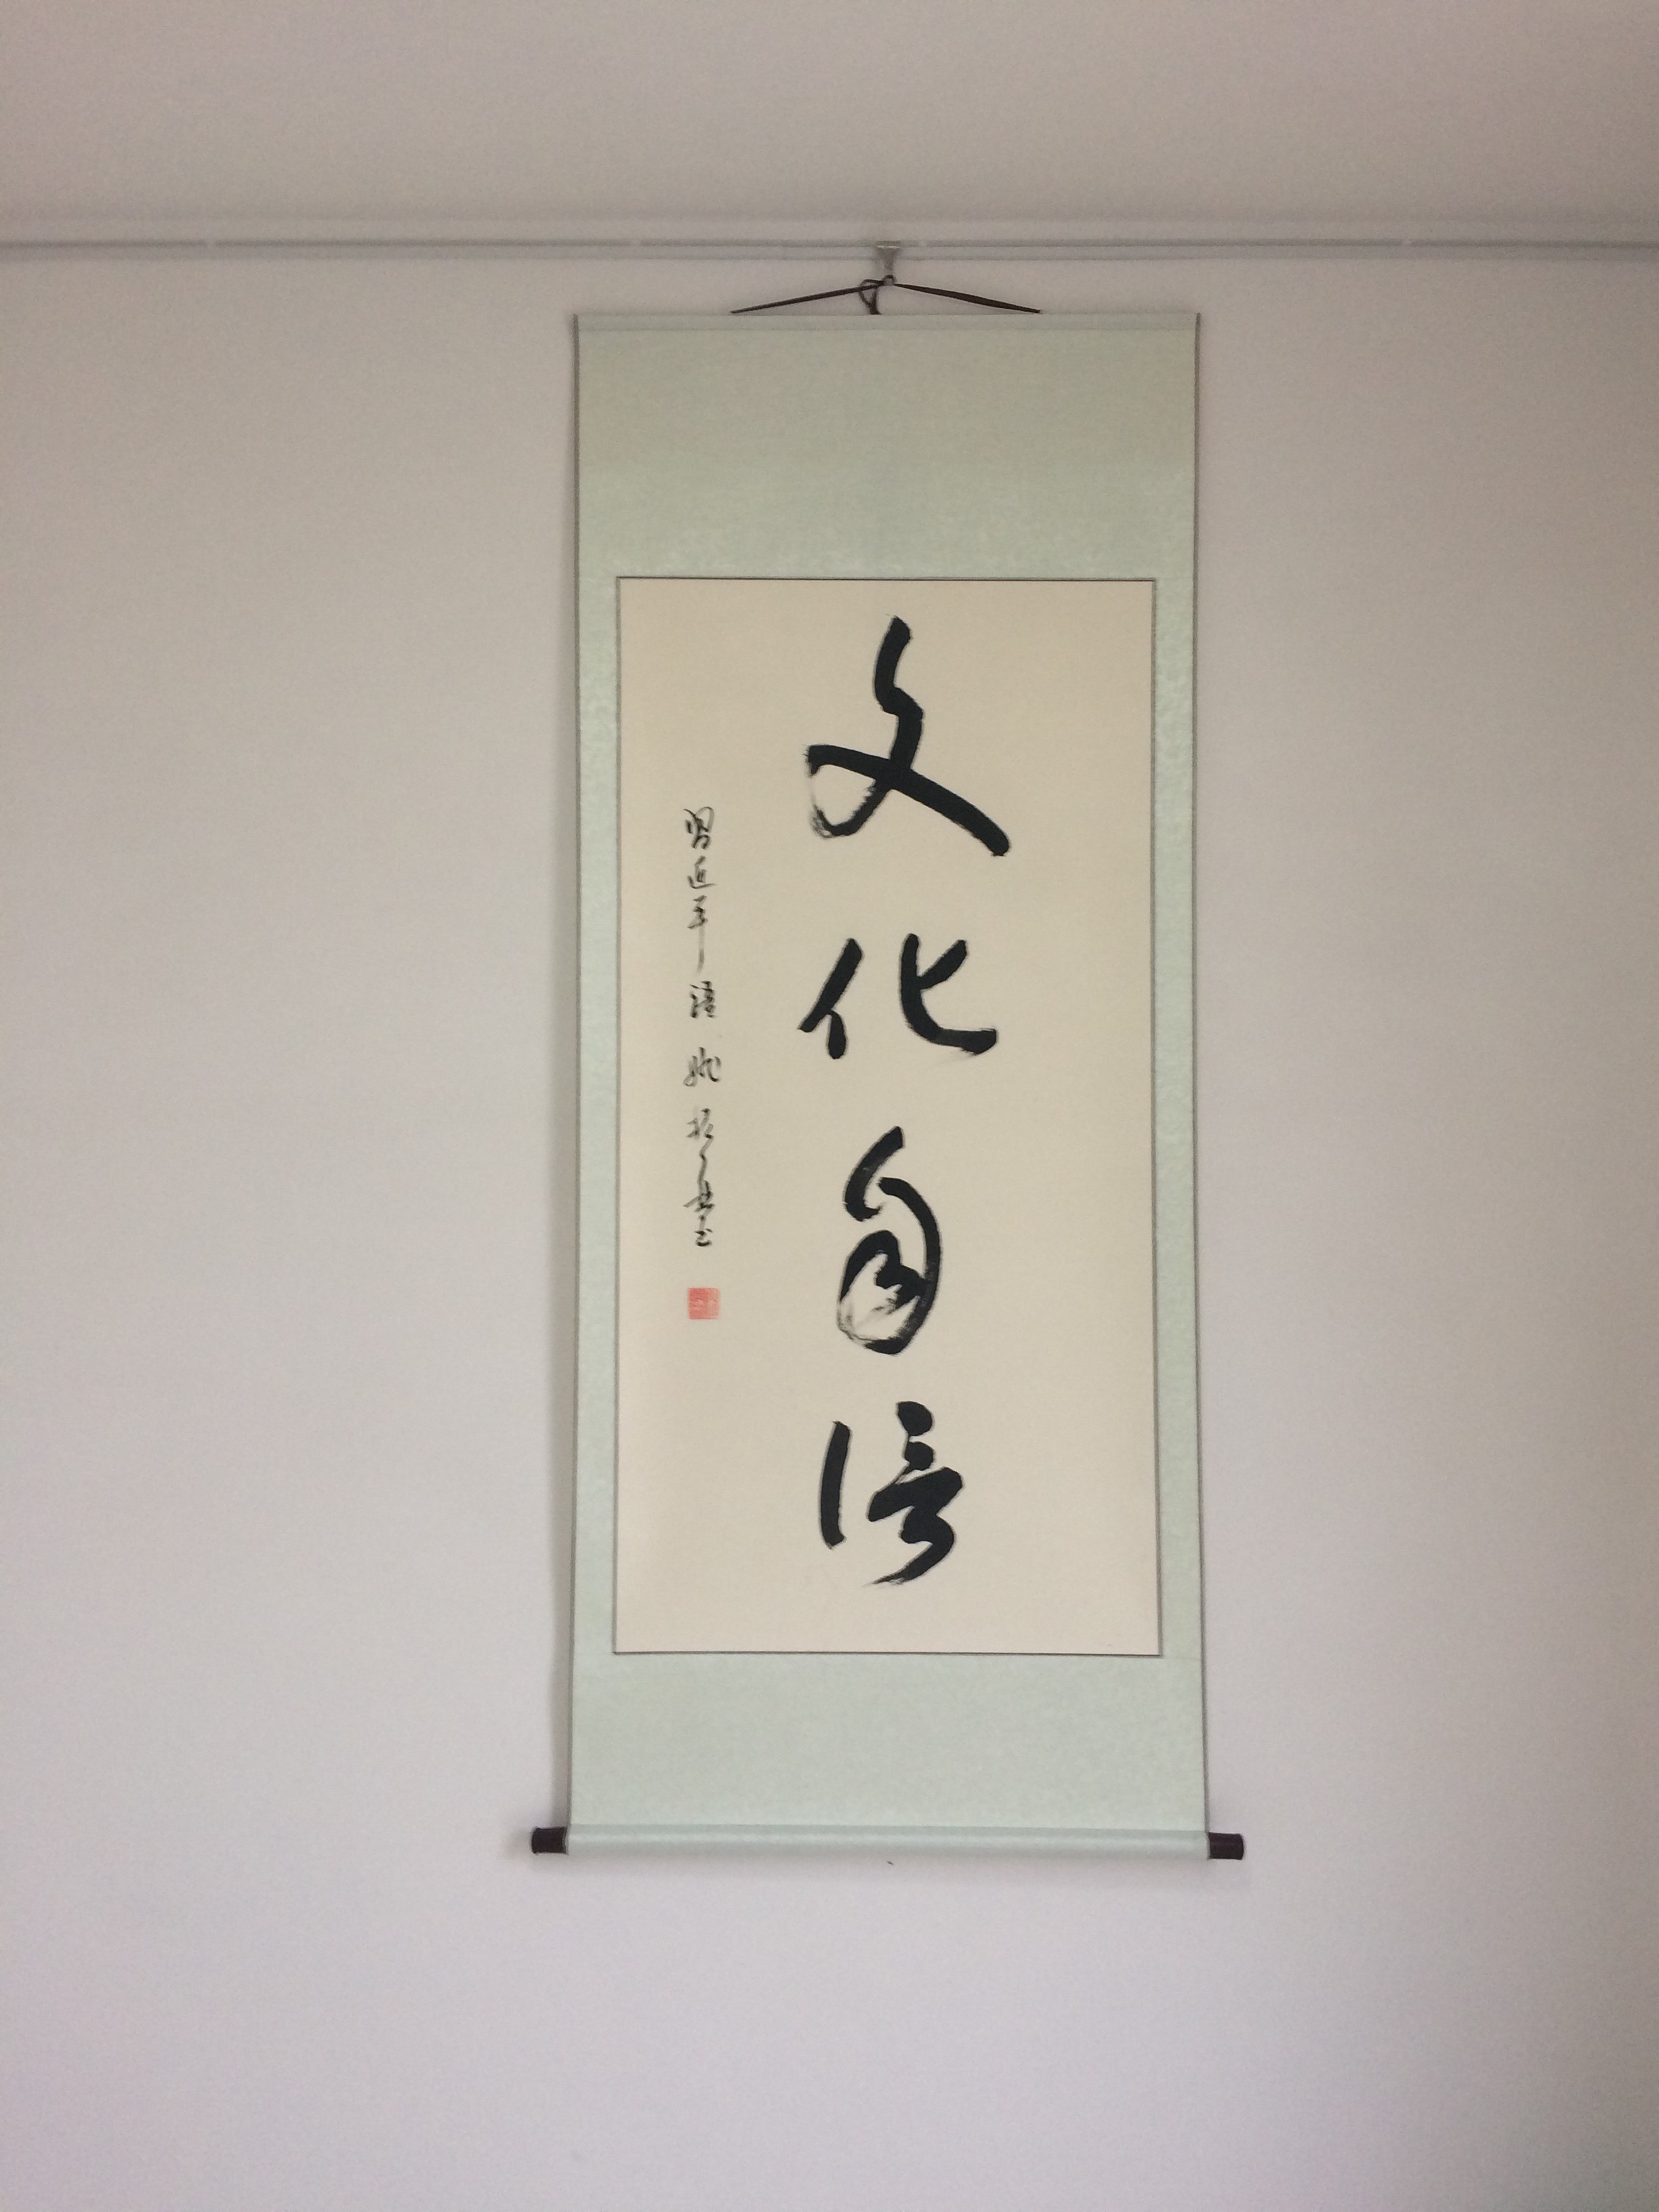 文化自信
習近平語 姚振